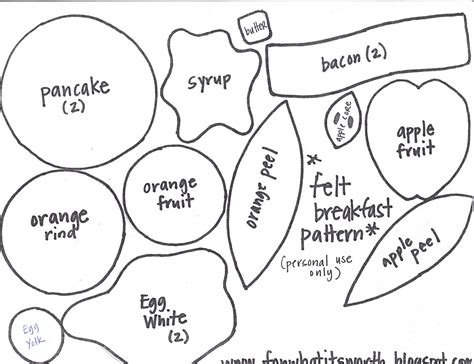 butter
pancake
(2)
syrup
bacon (2)
apple core
apple
fruit
orange
rind
orange
fruit
orange peel
* felt
breakfast
pattern *
(personal use
only)
apple peel
Egg
White
(2)
Egg
Yolk
www.forwhatitsworth.blogspot.com